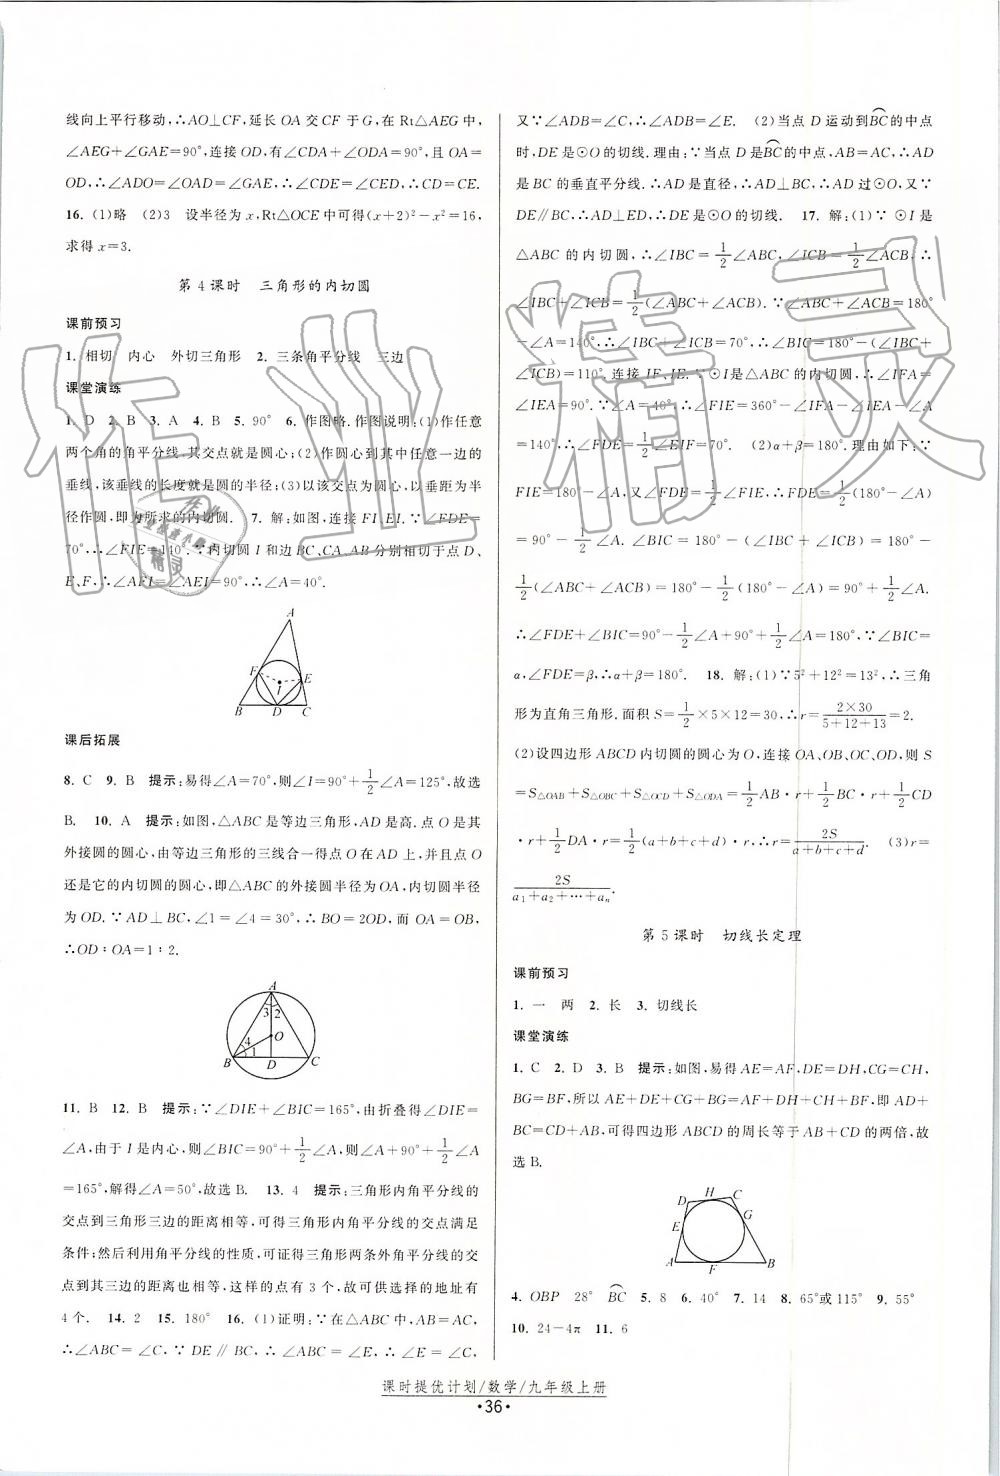 线向上平行移动,∴AO⊥CF,延长 OA 交 CF 于 G,在 Rt△AEG 中,
∠AEG+∠GAE=90°,连接 OD,有∠CDA+∠ODA=90°,且 OA=
OD,∴∠ADO=∠OAD=∠GAE,∴∠CDE=∠CED,∴CD=CE.
16. (1)略 (2)3 设半径为 x,Rt△OCE 中可得(x+2)²-x²=16,
求得 x=3.
第 4 课时 三角形的内切圆
课前预习
1. 相切 内心 外切三角形 2. 三条角平分线 三边
课堂演练
1. D 2. B 3. A 4. B 5. 90° 6. 作图略.作图说明:(1)作任意
两个角的角平分线.其交点就是圆心;(2)作圆心到其中任意一边的
垂线,该垂线的长度就是圆的半径;(3)以该交点为圆心,以垂距为半
径作圆,即为所求的内切圆. 7. 解:如图,连接 FI,EI.∵∠FDE=
70°,∴∠FIE=140°.∵内切圆 I 和边 BC、CA、AB 分别相切于点 D、
E、F,∴∠AFI=∠AEI=90°,∴∠A=40°.
A
F
E
I
B D C
课后拓展
8. C 9. B 提示:易得∠A=70°,则∠I=90°+1/2∠A=125°,故选
B. 10. A 提示:如图,△ABC 是等边三角形,AD 是高.点 O 是其
外接圆的圆心,由等边三角形的三线合一得点 O 在 AD 上,并且点 O
还是它的内切圆的圆心,即△ABC 的外接圆半径为 OA,内切圆半径
为 OD.∵AD⊥BC,∠1=∠4=30°,∴BO=2OD,而 OA=OB,
∴OD∶OA=1∶2.
A
3 2
4 O
1
B D C
11. B 12. B 提示:∵∠DIE+∠BIC=165°,由折叠得∠DIE=
∠A,由于 I 是内心,则∠BIC=90°+1/2∠A,则∠A+90°+1/2∠A
=165°,解得∠A=50°,故选 B. 13. 4 提示:三角形内角平分线的
交点到三角形三边的距离相等,可得三角形内角平分线的交点满足
条件;然后利用角平分线的性质,可证得三角形两条外角平分线的交
点到其三边的距离也相等,这样的点有 3 个,故可供选择的地址有
4 个. 14. 2 15. 180° 16. (1)证明:∵AB=AC,
∴∠ABC=∠C,∵DE∥BC,∴∠ABC=∠E,∴∠E=∠C,
又∵∠ADB=∠C,∴∠ADB=∠E. (2)当点 D 运动到BC⌒的中点
时,DE 是⊙O 的切线.理由:∵当点 D 是BC⌒的中点,AB=AC,∴AD
是 BC 的垂直平分线.∴AD 是直径,∴AD 过⊙O 的圆心,又∵
DE∥BC,∴AD⊥ED,∴DE 是⊙O 的切线. 17. 解:(1)∵⊙I 是
△ABC 的内切圆,∴∠IBC=1/2∠ABC,∠ICB=1/2∠ACB,∴
∠IBC+∠ICB=1/2(∠ABC+∠ACB).∵∠ABC+∠ACB=180°
-∠A=140°,∴∠IBC+∠ICB=70°,∴∠BIC=180°-(∠IBC+
∠ICB)=110°.连接 IF、IE.∵⊙I 是△ABC 的内切圆,∴∠IFA=
∠IEA=90°.∵∠A=40°,∴∠FIE=360°-∠IFA-∠IEA-∠A
=140°,∴∠FDE=1/2∠EIF=70°. (2)α+β=180°.理由如下:∵
∠FIE=180°-∠A,∠FDE=1/2∠FIE,∴∠FDE=1/2(180°-∠A)
=90°-1/2∠A.∠BIC=180°-(∠IBC+∠ICB)=180°-
1/2(∠ABC+∠ACB)=180°-1/2(180°-∠A)=90°+1/2∠A.
∴∠FDE+∠BIC=90°-1/2∠A+90°+1/2∠A=180°,∵∠BIC=
α,∠FDE=β,∴α+β=180°. 18. 解:(1)∵5²+12²=13²,∴三角
形为直角三角形.面积 S=1/2×5×12=30,∴r=(2×30)/(5+12+13)=2.
(2)设四边形 ABCD 内切圆的圆心为 O,连接 OA、OB、OC、OD,则 S
=S△OAB+S△OBC+S△OCD+S△ODA=1/2AB·r+1/2BC·r+1/2CD
·r+1/2DA·r=1/2(a+b+c+d)·r,∴r=2S/(a+b+c+d). (3)r=
2S/(a₁+a₂+…+aₙ).
第 5 课时 切线长定理
课前预习
1. 一 两 2. 长 3. 切线长
课堂演练
1. C 2. D 3. B 提示:如图,易得 AE=AF,DE=DH,CG=CH,
BG=BF,所以 AE+DE+CG+BG=AF+DH+CH+BF,即 AD+
BC=CD+AB,可得四边形 ABCD 的周长等于 AB+CD 的两倍,故
选 B.
D H C
G
E
A F B
4. OBP 28° BC⌒ 5. 8 6. 40° 7. 14 8. 65°或115° 9. 55°
10. 24-4π 11. 6
课时提优计划/数学/九年级上册
·36·
作业精灵